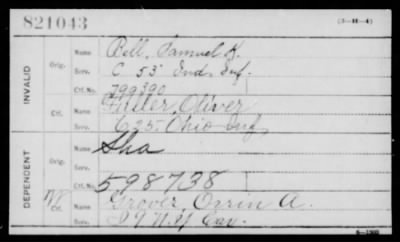 821043 (3-H-4)
INVALID
Orig. Name Bell, Samuel K.
Serv. C 55 Ind. Inf.
Ctf. No. 799390
Ctf. Name Fuller Oliver
Serv. C 25 Ohio Inf
DEPENDENT
Orig. Name Sha
Serv.
Ctf. No. 598738
Ctf. Name Grover, Orrin A.
Serv. I 9 N.Y Cav.